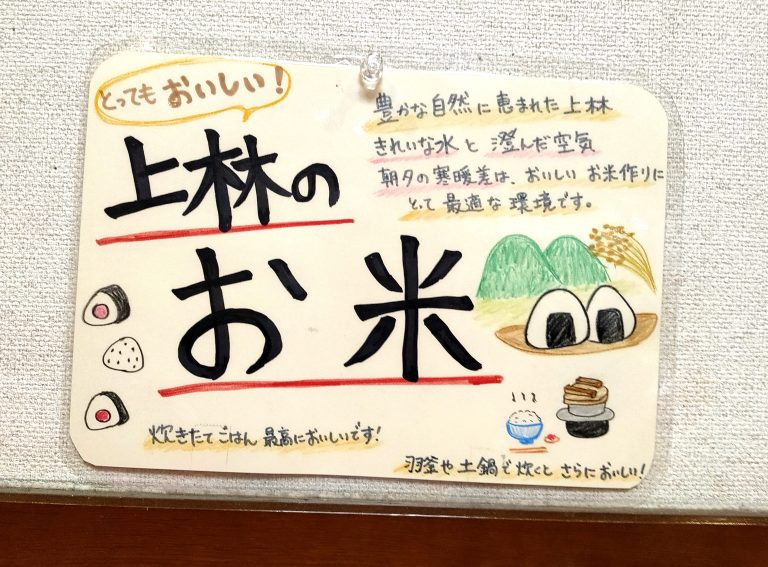 とっても おいしい!
上林の
お米
豊かな自然に恵まれた上林
きれいな水と澄んだ空気
朝夕の寒暖差は、おいしいお米作りに
とて最適な環境です。
炊きたてごはん最高においしいです!
羽釜や土鍋で炊くとさらにおいしい!